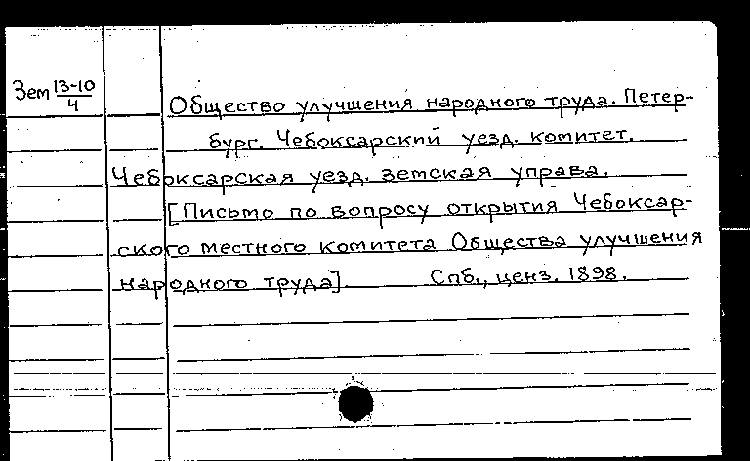 Зем 13-10/4
Общество улучшения народного труда. Петер-
бург. Чебоксарский уезд. комитет.
Чебоксарская уезд. земская управа.
[Письмо по вопросу открытия Чебоксар-
ского местного комитета Общества улучшения
народного труда]. Спб., ценз. 1898.